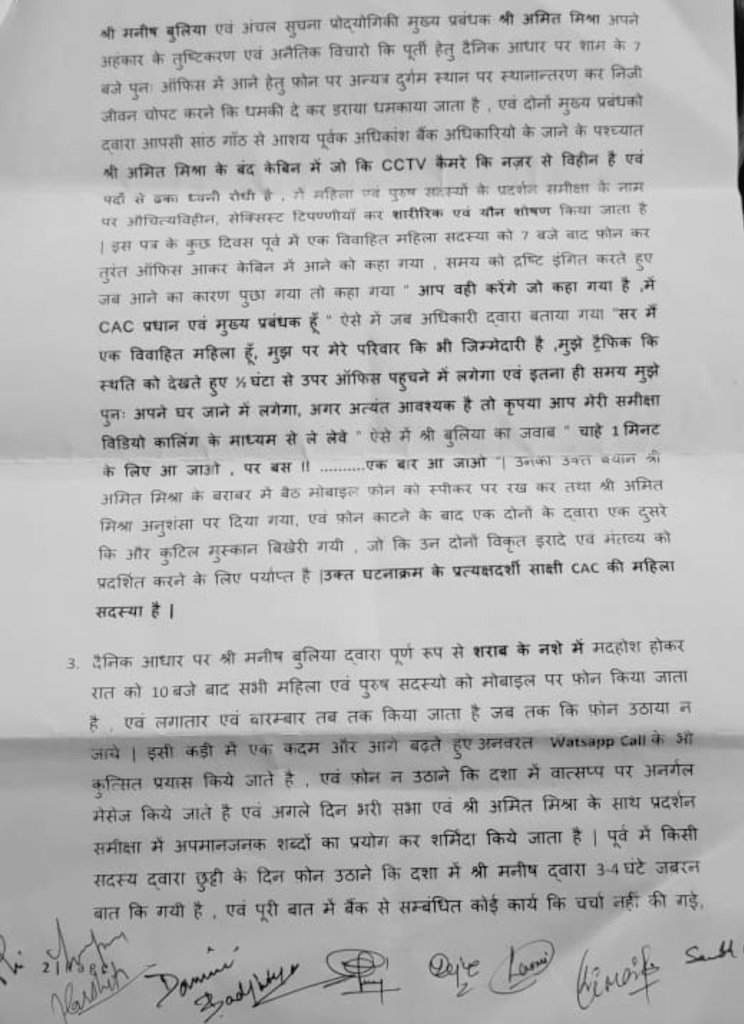 श्री मनीष बुलिया एवं अंचल सुचना प्रोद्योगिकी मुख्य प्रबंधक श्री अमित मिश्रा अपने
अहंकार के तुष्टिकरण एवं अनैतिक विचारो कि पूर्ती हेतु दैनिक आधार पर शाम के 7
बजे पुनः ऑफिस में आने हेतु फ़ोन पर अन्यत्र दुर्गम स्थान पर स्थानान्तरण कर निजी
जीवन चोपट करने कि धमकी दे कर डराया धमकाया जाता है , एवं दोनों मुख्य प्रबंधको
द्वारा आपसी सांठ गाँठ से आशय पूर्वक अधिकांश बैंक अधिकारियो के जाने के पश्च्यात
श्री अमित मिश्रा के बंद केबिन में जो कि CCTV कैमरे कि नज़र से विहीन है एवं
पर्दो से ढका ध्वनी रोधी है , में महिला एवं पुरुष सदस्यों के प्रदर्शन समीक्षा के नाम
पर औचित्यविहीन, सेक्सिस्ट टिपण्णीयाँ कर शारीरिक एवं यौन शोषण किया जाता है
| इस पत्र के कुछ दिवस पूर्व में एक विवाहित महिला सदस्या को 7 बजे बाद फ़ोन कर
तुरंत ऑफिस आकर केबिन में आने को कहा गया , समय को द्रष्टि इंगित करते हुए
जब आने का कारण पुछा गया तो कहा गया " आप वही करेंगे जो कहा गया है ,में
CAC प्रधान एवं मुख्य प्रबंधक हूँ " ऐसे में जब अधिकारी द्वारा बताया गया "सर मैं
एक विवाहित महिला हूँ, मुझ पर मेरे परिवार कि भी जिम्मेदारी है ,मुझे ट्रैफिक कि
स्थति को देखते हुए ½ घंटा से उपर ऑफिस पहुचने में लगेगा एवं इतना ही समय मुझे
पुनः अपने घर जाने में लगेगा, अगर अत्यंत आवश्यक है तो कृपया आप मेरी समीक्षा
विडियो कालिंग के माध्यम से ले लेवे " ऐसे में श्री बुलिया का जवाब " चाहे 1 मिनट
के लिए आ जाओ , पर बस !! ..........एक बार आ जाओ "| उनका उक्त बयान श्री
अमित मिश्रा के बराबर में बैठ मोबाइल फ़ोन को स्पीकर पर रख कर तथा श्री अमित
मिश्रा अनुशंसा पर दिया गया, एवं फ़ोन काटने के बाद एक दोनों के द्वारा एक दुसरे
कि और कुटिल मुस्कान बिखेरी गयी , जो कि उन दोनों विकृत इरादे एवं मंतव्य को
प्रदर्शित करने के लिए पर्याप्त है |उक्त घटनाक्रम के प्रत्यक्षदर्शी साक्षी CAC की महिला
सदस्या है |
3. दैनिक आधार पर श्री मनीष बुलिया द्वारा पूर्ण रूप से शराब के नशे में मदहोश होकर
रात को 10 बजे बाद सभी महिला एवं पुरुष सदस्यो को मोबाइल पर फ़ोन किया जाता
है , एवं लगातार एवं बारम्बार तब तक किया जाता है जब तक कि फ़ोन उठाया न
जाये | इसी कड़ी में एक कदम और आगे बढ़ते हुए अनवरत Watsapp Call के भी
कुत्सित प्रयास किये जाते है , एवं फ़ोन न उठाने कि दशा में वात्सप्प पर अनर्गल
मेसेज किये जाते है एवं अगले दिन भरी सभा एवं श्री अमित मिश्रा के साथ प्रदर्शन
समीक्षा में अपमानजनक शब्दों का प्रयोग कर शर्मिदा किये जाता है | पूर्व में किसी
सदस्य द्वारा छुट्टी के दिन फ़ोन उठाने कि दशा में श्री मनीष द्वारा 3-4 घंटे जबरन
बात कि गयी है , एवं पूरी बात में बैंक से सम्बंधित कोई कार्य कि चर्चा नहीं की गई,
Harshit Damini